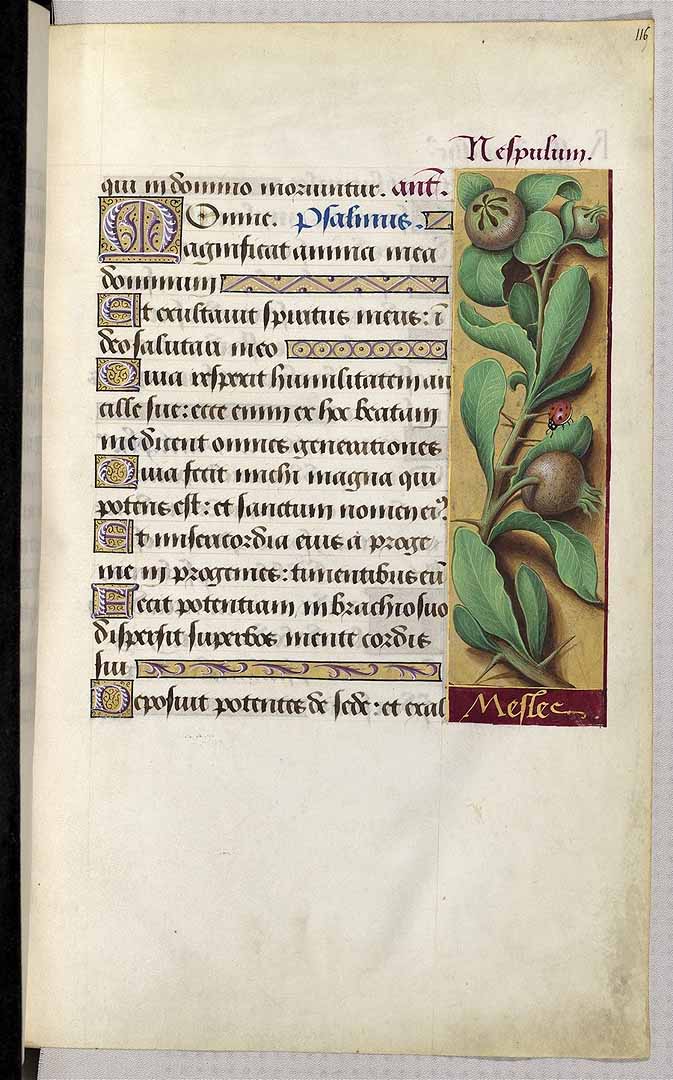 116
Nespulum.
qui in domino moriuntur. añt.
Omne. psalmus.
Magnificat anima mea
dominum
Et exultavit spiritus meus: ī
deo salutari meo
Quia respexit humilitatem an
cille sue: ecce enim ex hoc beatam
me dicent omnes generationes
Quia fecit michi magna qui
potens est: et sanctum nomen ei⁹
Et misericordia eius a proge
nie in progenies: timentibus eū
Fecit potentiam in brachio suo
dispersit superbos mente cordis
sui
Deposuit potentes de sede: et exal
Mesles